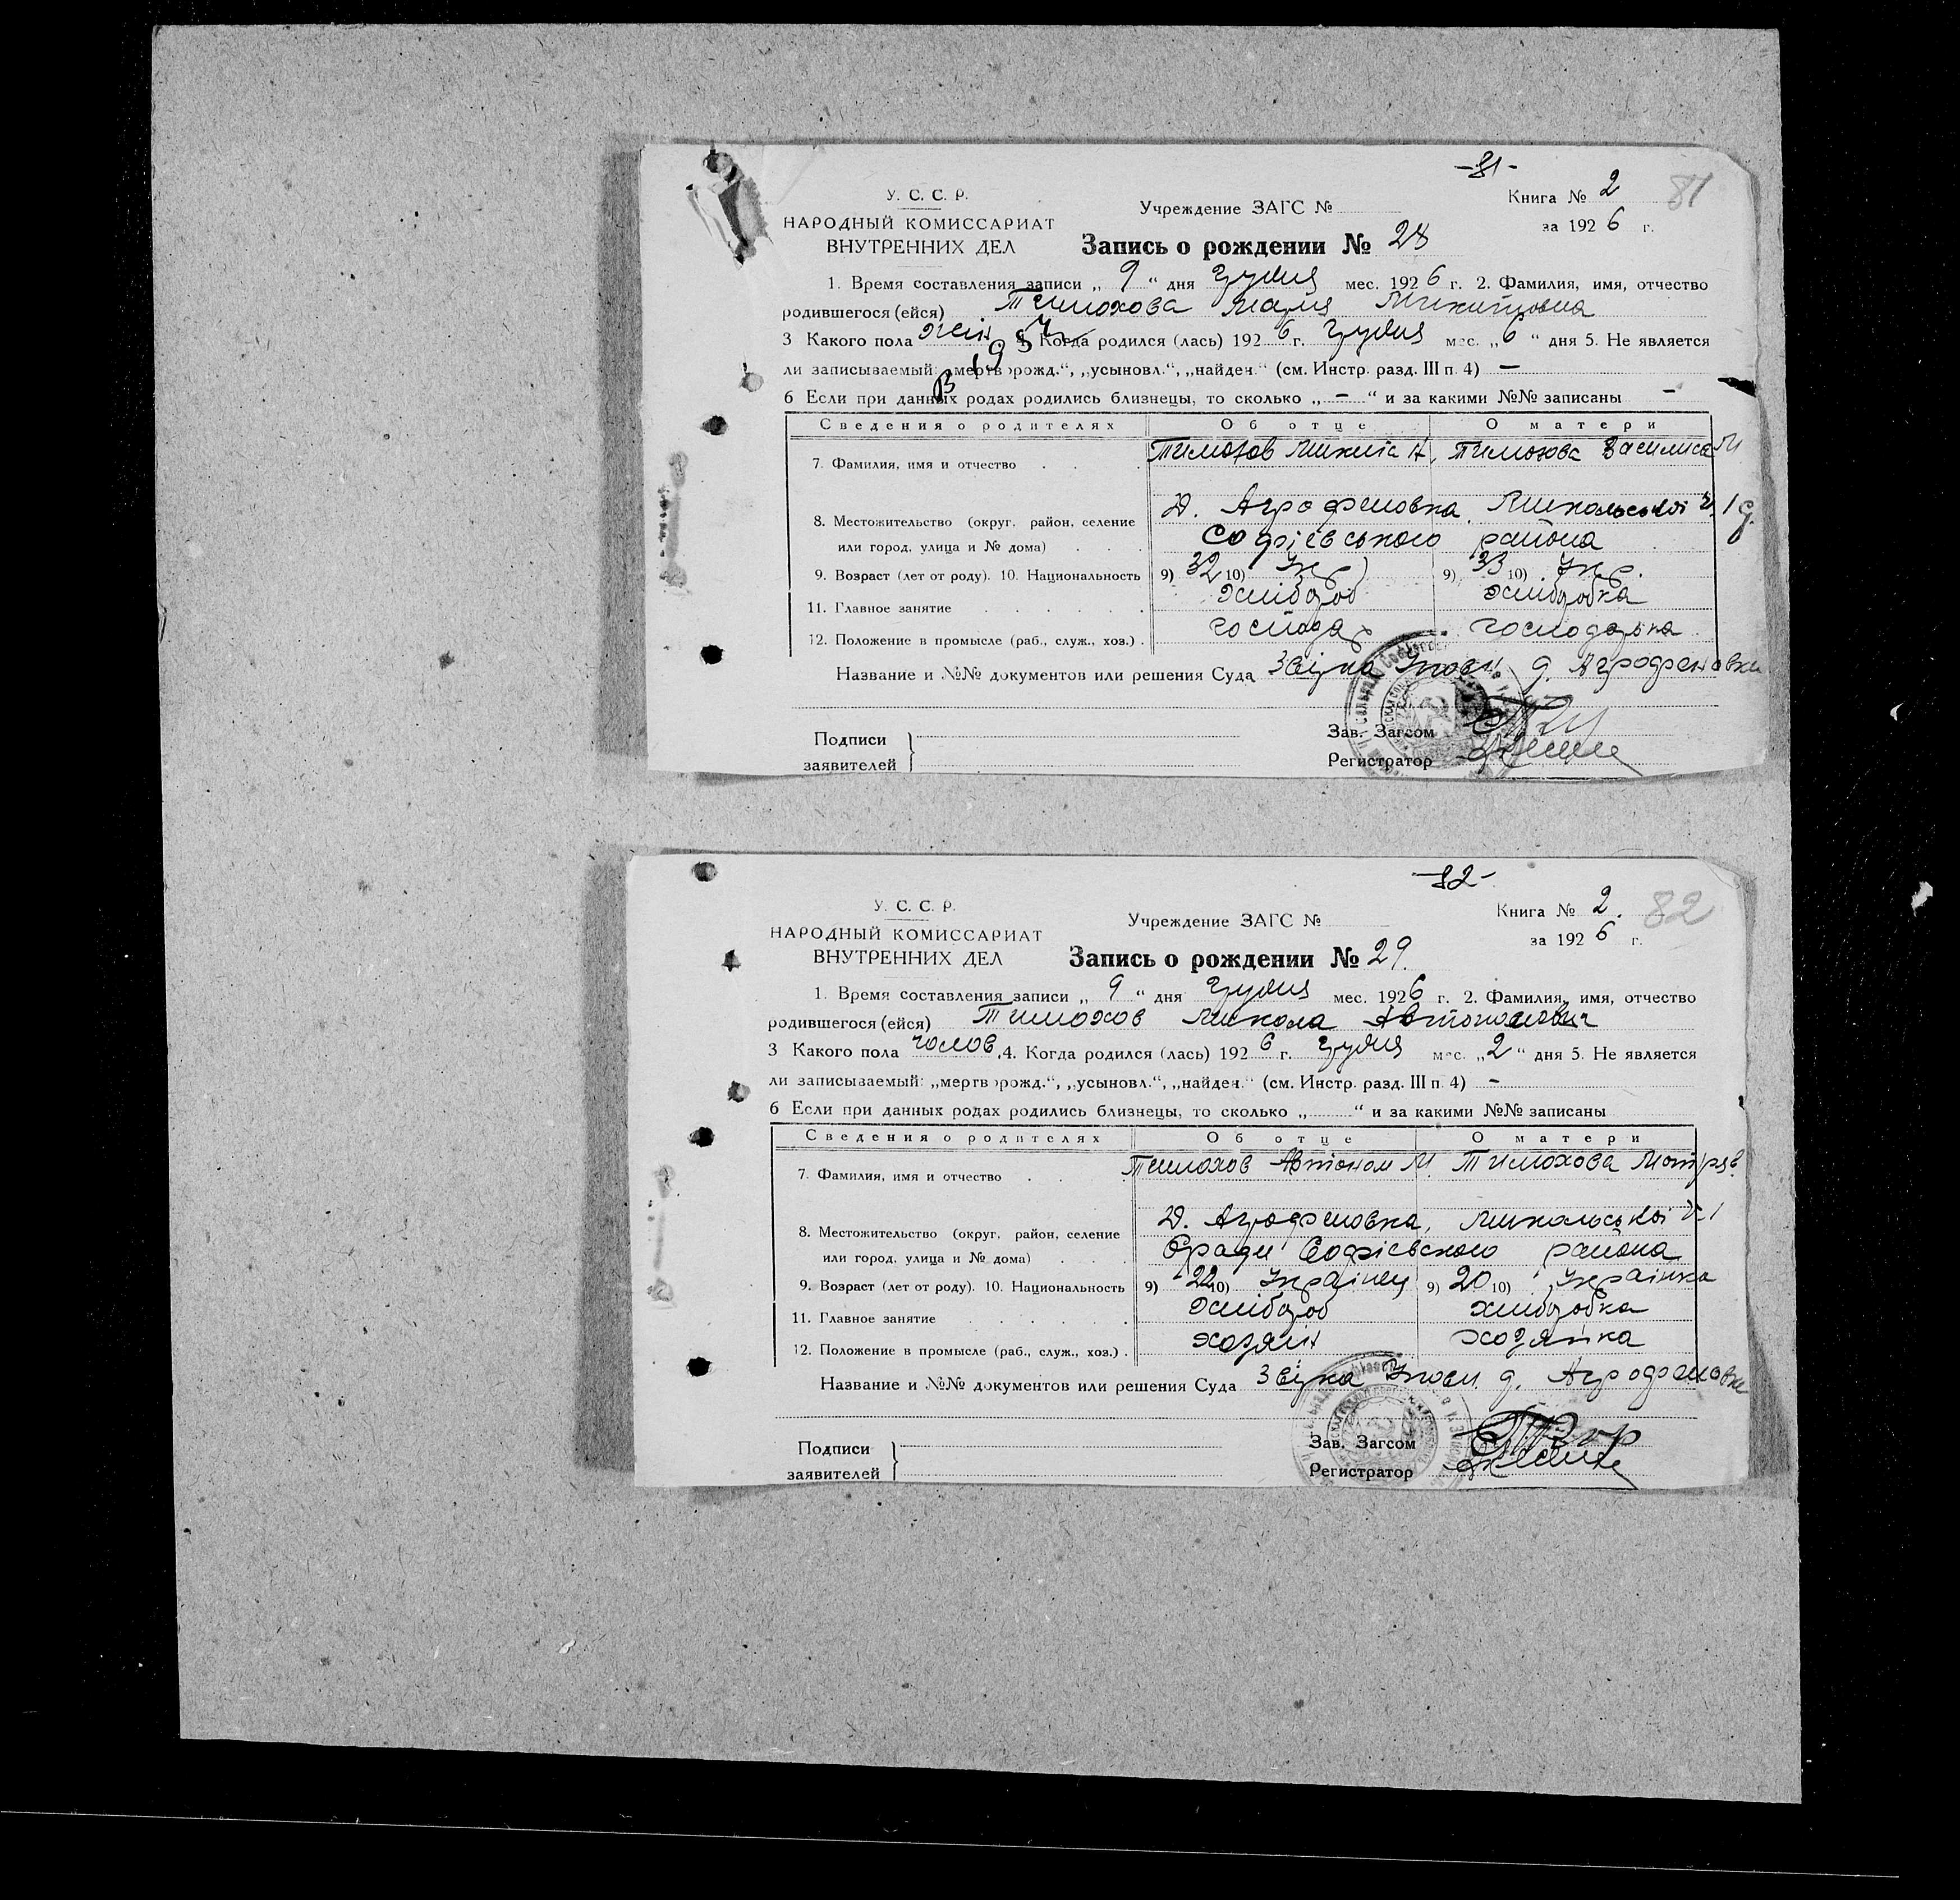 -81-
У. С. С. Р.
НАРОДНЫЙ КОМИССАРИАТ
ВНУТРЕННИХ ДЕЛ
Учреждение ЗАГС №
Книга № 2
81
за 1926 г.
Запись о рождении № 28
1. Время составления записи „ 9 “ дня грудня мес. 1926 г. 2. Фамилия, имя, отчество
родившегося (ейся) Тимохова Марія Микитовна
3 Какого пола жін 4. Когда родился (лась) 1926 г. грудня мес. „ 6 “ дня 5. Не является
ли записываемый: „мертворожд.“, „усыновл.“, „найден.“ (см. Инстр. разд. III п. 4) –
6 Если при данных родах родились близнецы, то сколько „ – “ и за какими №№ записаны –
Сведения о родителях Об отце О матери
7. Фамилия, имя и отчество Тимохов Микита А. Тимохова Василиса М
8. Местожительство (округ, район, селение Д. Агрофеновка, Микольської
или город, улица и № дома) Софієвського района
9. Возраст (лет от роду). 10. Национальность 9) 32 10) Укр. 9) 33 10) Укр.
11. Главное занятие хлібороб хліборобка
12. Положение в промысле (раб., служ., хоз.) господар господарька
Название и №№ документов или решения Суда Звірка Уповн. д. Агрофеновки
Подписи
заявителей
Зав. Загсом
Регистратор
-82-
У. С. С. Р.
НАРОДНЫЙ КОМИССАРИАТ
ВНУТРЕННИХ ДЕЛ
Учреждение ЗАГС №
Книга № 2.
82
за 1926 г.
Запись о рождении № 29.
1. Время составления записи „ 9 “ дня грудня мес. 1926 г. 2. Фамилия, имя, отчество
родившегося (ейся) Тимохов Микола Автономович
3 Какого пола чолов. 4. Когда родился (лась) 1926 г. грудня мес. „ 2 “ дня 5. Не является
ли записываемый: „мертворожд.“, „усыновл.“, „найден.“ (см. Инстр. разд. III п. 4) –
6 Если при данных родах родились близнецы, то сколько „ “ и за какими №№ записаны
Сведения о родителях Об отце О матери
7. Фамилия, имя и отчество Тимохов Автоном М. Тимохова Мотря
8. Местожительство (округ, район, селение Д. Агрофеновка, Микольської
или город, улица и № дома) Софієвського района
9. Возраст (лет от роду). 10. Национальность 9) 22 10) Українец 9) 20 10) Українка
11. Главное занятие хлібороб хліборобка
12. Положение в промысле (раб., служ., хоз.) хозяїн хозяйка
Название и №№ документов или решения Суда Звірка Уповн. д. Агрофеновки
Подписи
заявителей
Зав. Загсом
Регистратор